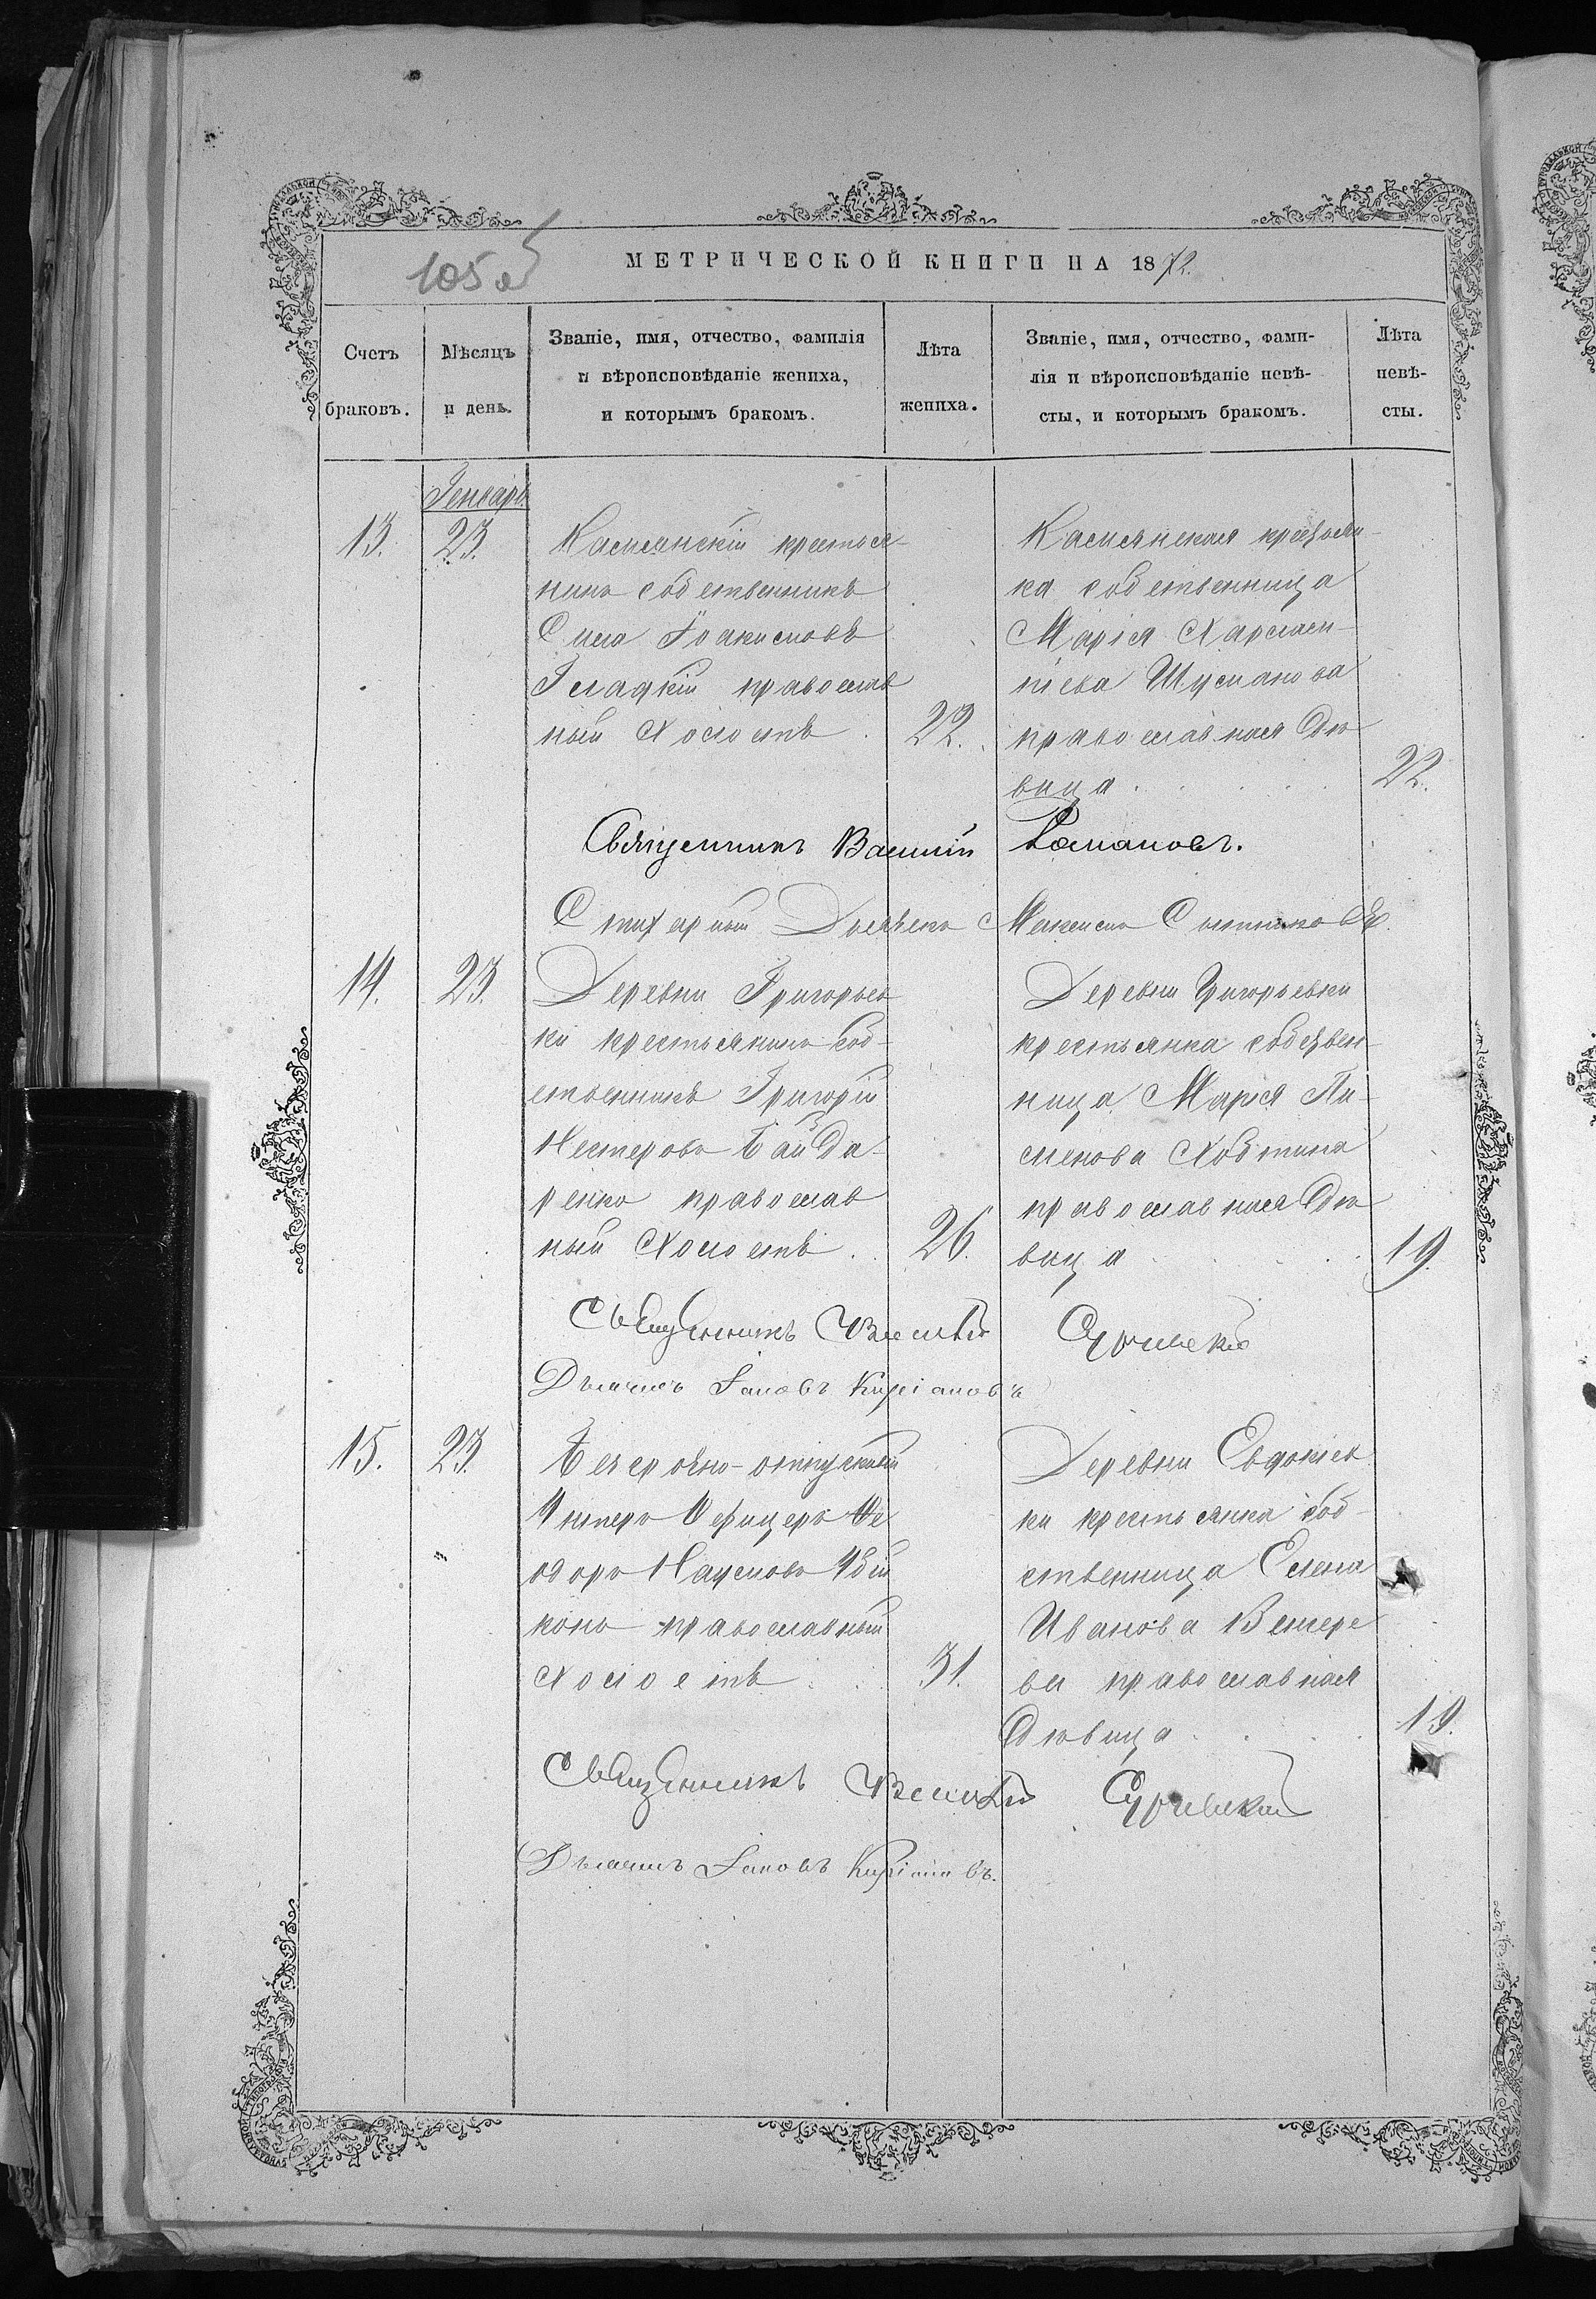 105 об
МЕТРИЧЕСКОЙ КНИГИ НА 1872.
Счетъ
браковъ.
Мѣсяцъ
и день.
Званіе, имя, отчество, фамилія
и вѣроисповѣданіе жениха,
и которымъ бракомъ.
Лѣта
жениха.
Званіе, имя, отчество, фами-
лія и вѣроисповѣданіе невѣ-
сты, и которымъ бракомъ.
Лѣта
невѣ-
сты.
Генварь
13.
23.
Камянскій крестья-
нинъ собственникъ
Сила Іоакимовъ
Гладкій православ
ный Холостъ
22.
Камянская крестьян-
ка собственница
Марія Харламп-
піева Шуманова
православная Дѣ
вица
22.
Священникъ Василій Романовъ.
Стихарный Дьячекъ
14.
23.
Деревни Григорьев
ки крестьянинъ соб-
ственникъ Григорій
Нестеровъ Байда-
ренко православ
ный Холостъ
26.
Деревни Григорьевки
крестьянка собствен-
ница Марія Пи-
менова Ховтина
православная Дѣ
вица
19.
Священникъ Василій
Дьячекъ Іаковъ Кирiановъ
15.
23.
Безсрочно-отпускный
Унтеръ Офицеръ Ѳе
одоръ Наумовъ Убій
конь православный
Холостъ
31.
Деревни Евдокіев
ки крестьянка соб-
ственница Елена
Иванова Венгере
ва православная
Дѣвица
19.
Священникъ Василій
Дьячекъ Іаковъ Кирiановъ.